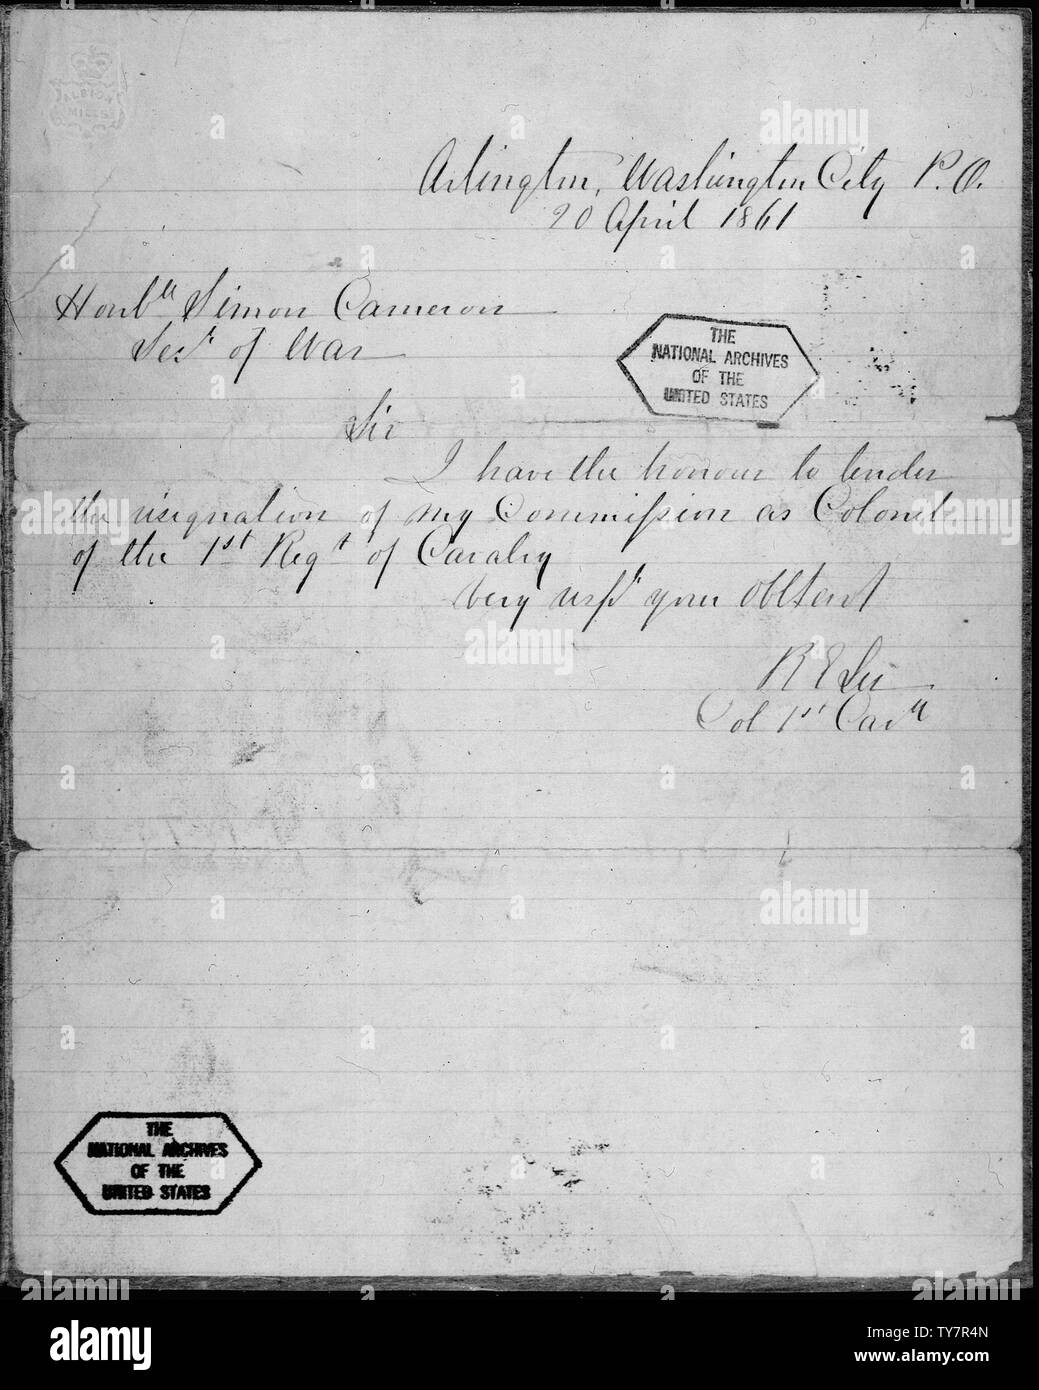 ALBION
MILLS
Arlington, Washington City P.O.
20 April 1861
Honble Simon Cameron
Secy of War
THE
NATIONAL ARCHIVES
OF THE
UNITED STATES
Sir
I have the honour to tender
the resignation of my Commission as Colonel
of the 1st Regt of Cavalry
Very respy your Obt Servt
R E Lee
Col 1st Cavy
THE
NATIONAL ARCHIVES
OF THE
UNITED STATES
alamy
Image ID: TY7R4N
www.alamy.com